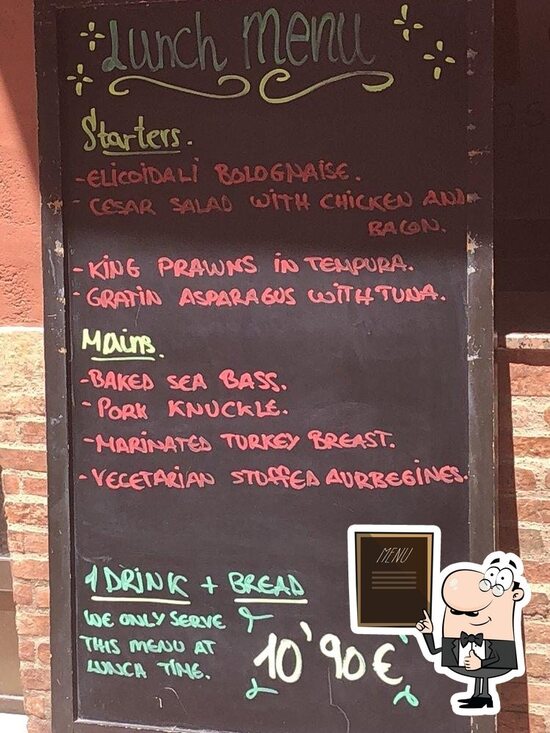 Lunch Menu
Starters.
- ELICOIDALI BOLOGNAISE.
- CESAR SALAD WITH CHICKEN AND
BACON.
- KING PRAWNS IN TEMPURA.
- GRATIN ASPARAGUS WITH TUNA.
Mains.
- BAKED SEA BASS.
- PORK KNUCKLE.
- MARINATED TURKEY BREAST.
- VECETARIAN STOFFED AURBEGINES.
1 DRINK + BREAD
WE ONLY SERVE
THIS MENU AT
LUNCH TIME.
10'90€
MENU